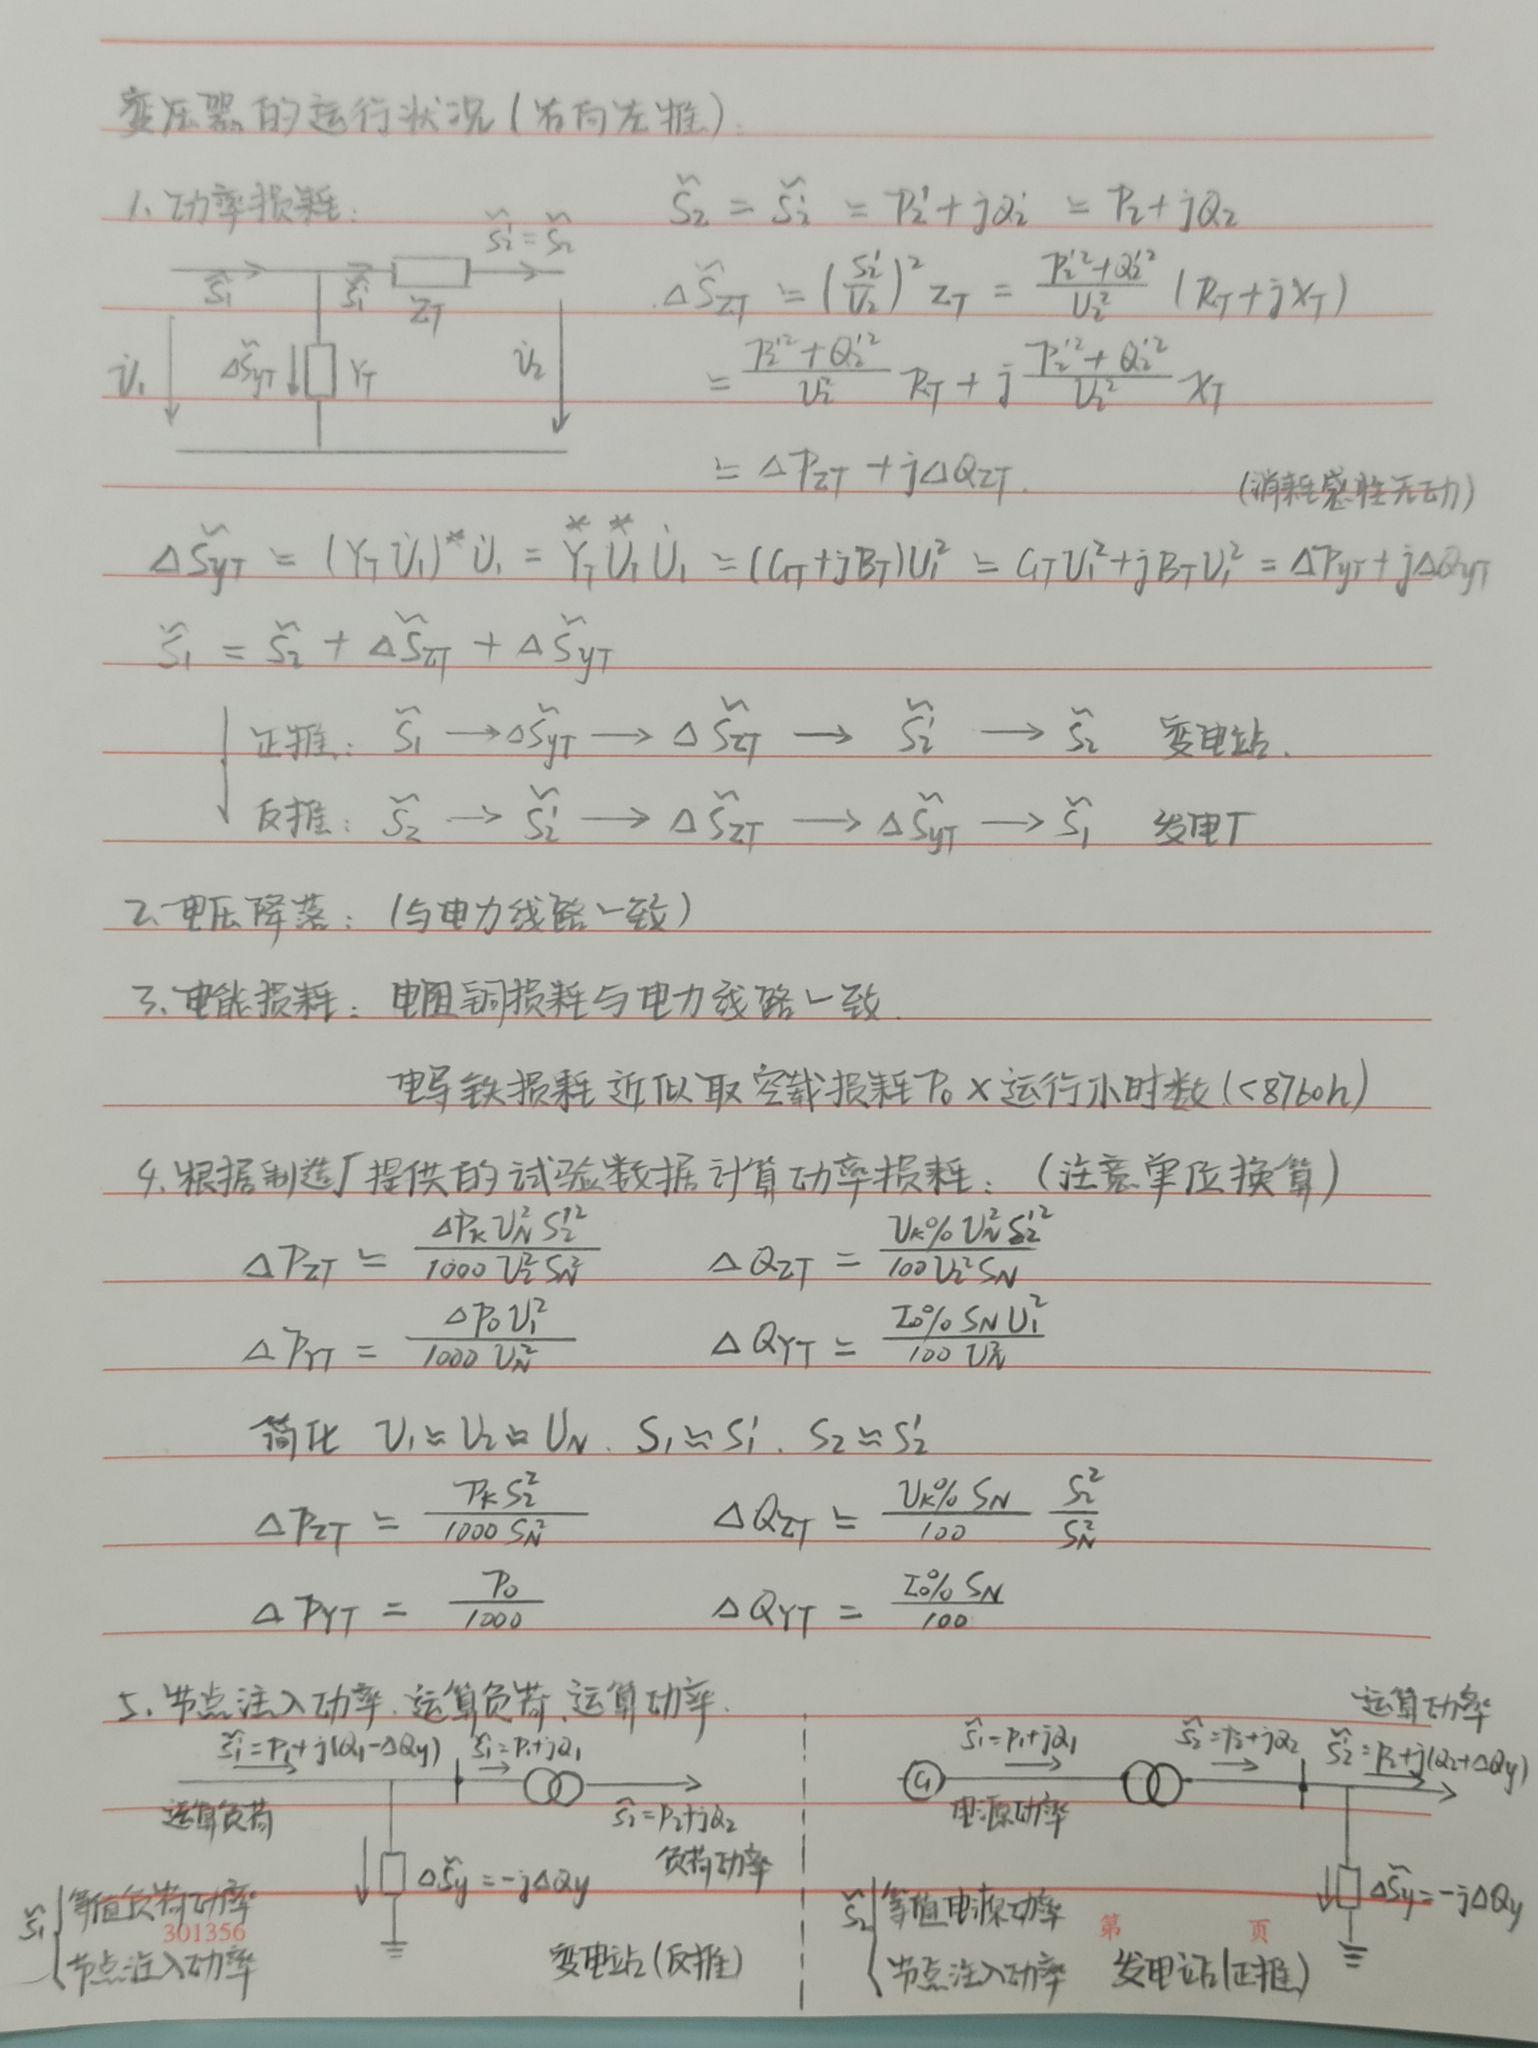 变压器的运行状况(右向左推):
1、功率损耗:
S̃₂ = S̃₂' = P₂'+jQ₂' = P₂+jQ₂
S̃₂'=S̃₂
S̃₁ S̃₁' Z_T
U̇₁ ΔS̃_yT Y_T U̇₂
ΔS̃_ZT = (S₂'/U₂)² Z_T = (P₂'²+Q₂'²)/U₂² (R_T+jX_T)
= (P₂'²+Q₂'²)/U₂² R_T + j (P₂'²+Q₂'²)/U₂² X_T
= ΔP_ZT + jΔQ_ZT.
(消耗感性无功)
ΔS̃_yT = (Y_T U̇₁)* U̇₁ = Y_T* U₁* U̇₁ = (G_T+jB_T)U₁² = G_T U₁²+jB_T U₁² = ΔP_yT+jΔQ_yT
S̃₁ = S̃₂ + ΔS̃_ZT + ΔS̃_yT
正推: S̃₁ → ΔS̃_yT → ΔS̃_ZT → S̃₂' → S̃₂ 变电站.
反推: S̃₂ → S̃₂' → ΔS̃_ZT → ΔS̃_yT → S̃₁ 发电厂
2、电压降落: (与电力线路一致)
3、电能损耗: 电阻铜损耗与电力线路一致.
电导铁损耗近似取空载损耗P₀×运行小时数(<8760h)
4、根据制造厂提供的试验数据计算功率损耗: (注意单位换算)
ΔP_ZT = ΔP_K U_N² S₂'²/1000 U₂² S_N² ΔQ_ZT = U_K% U_N² S₂'²/100 U₂² S_N
ΔP_YT = ΔP₀ U₁²/1000 U_N² ΔQ_YT = I₀% S_N U₁²/100 U_N²
简化 U₁≈U₂≈U_N. S₁≈S₁'. S₂≈S₂'
ΔP_ZT = P_K S₂²/1000 S_N² ΔQ_ZT = U_K% S_N/100 S₂²/S_N²
ΔP_YT = P₀/1000 ΔQ_YT = I₀% S_N/100
5、节点注入功率、运算负荷、运算功率.
S̃₁'=P₁+j(Q₁-ΔQy) S̃₁=P₁+jQ₁
运算负荷
S̃₂=P₂+jQ₂
负荷功率
ΔS̃y=-jΔQy
S̃₁' 等值负荷功率
节点注入功率
301356
变电站(反推)
运算功率
S̃₁=P₁+jQ₁ S̃₂=P₂+jQ₂ S̃₂'=P₂+j(Q₂+ΔQy)
G 电源功率
ΔS̃y=-jΔQy
S̃₂' 等值电源功率
第 页
节点注入功率 发电站(正推)